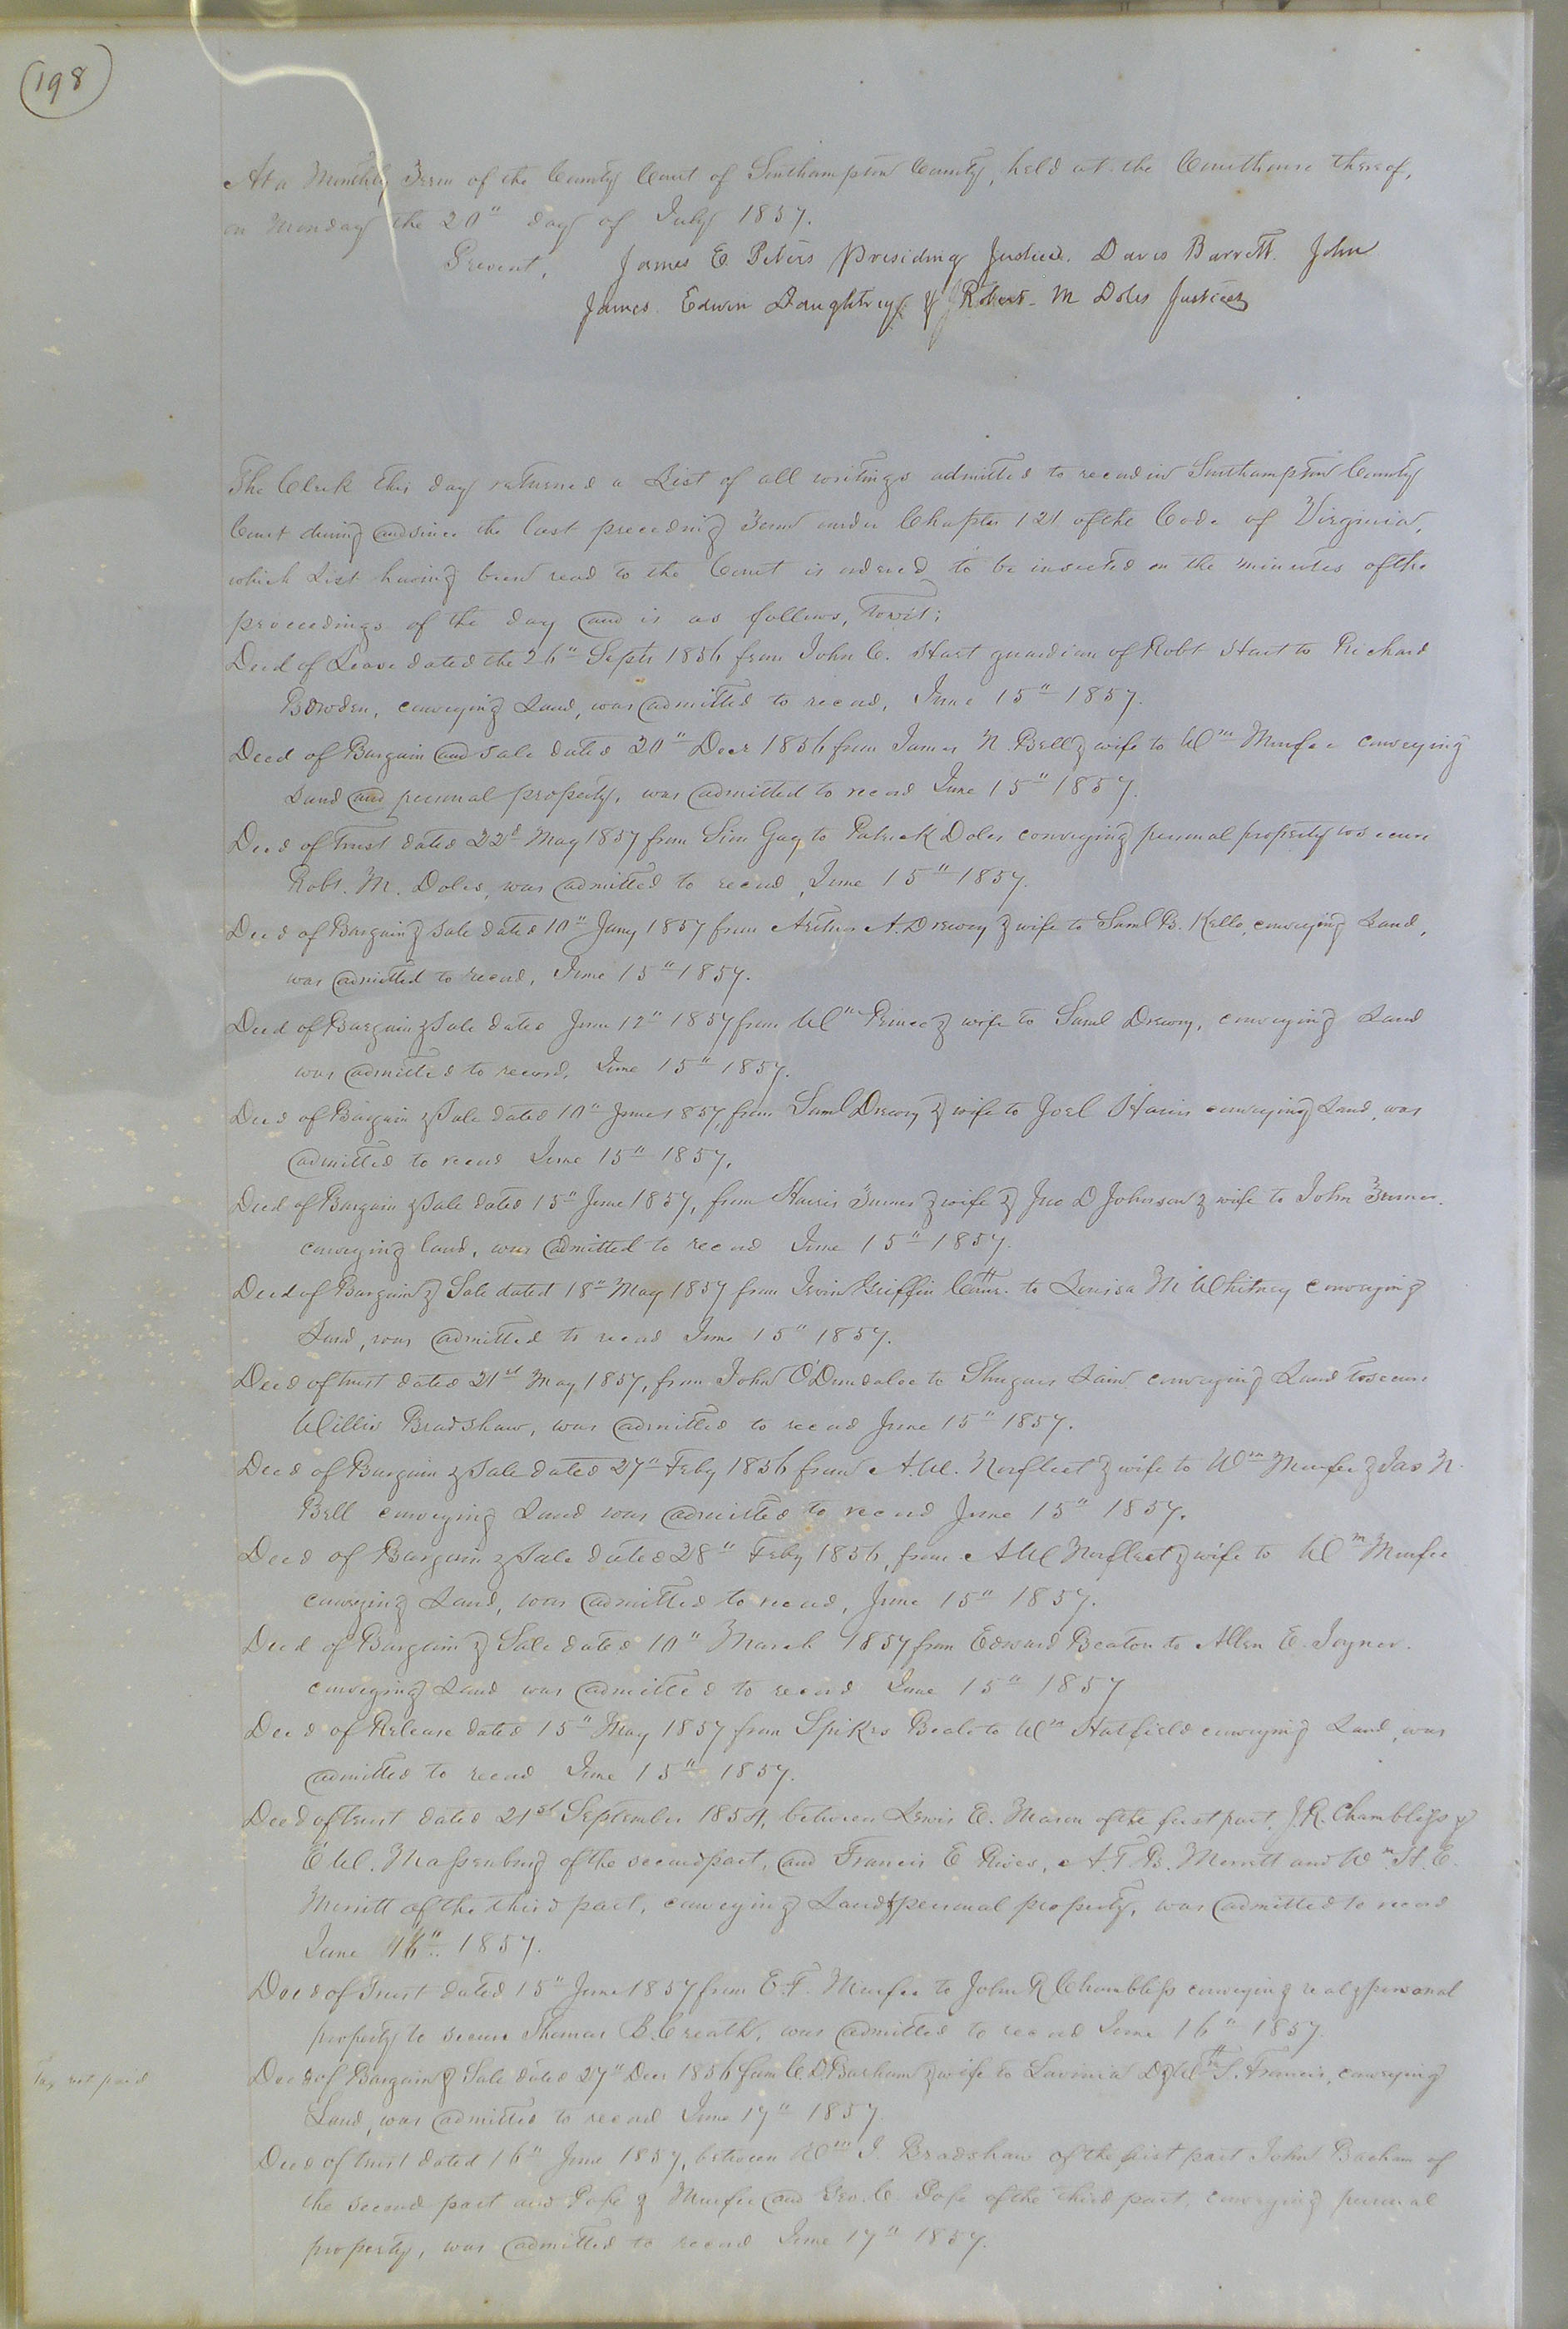 198
At a Monthly Term of the County Court of Southampton County, held at the Courthouse thereof,
on Monday the 20" day of July 1857.
Present, James E. Peters Presiding Justice. Davis Barrett. John
James. Edwin Daughtrey & Robert. M Doles Justices
The Clerk this day returned a List of all writings admitted to record in Southampton County
Court during and since the last preceeding Term under Chapter 121 of the Code of Virginia,
which List having been read to the Court is ordered to be inserted on the minutes of the
proceedings of the day and is as follows, Towit;
Deed of Lease dated the 26" Septr 1856 from John C. Hart guardian of Robt Hart to Richard
Bowden, conveying Land, was admitted to record, June 15" 1857.
Deed of Bargain and sale dated 30" Decr 1856 from James N. Bell & wife to Wm Murfee conveying
Land and personal property, was admitted to record June 15" 1857.
Deed of trust dated 22d May 1857 from Sion Gay to Patrick Doles conveying personal property to secure
Robt. M. Doles, was admitted to record, June 15" 1857.
Deed of Bargain & sale dated 10" Jany 1857 from A. Drewry & wife to Saml B. Kello, conveying Land,
was admitted to record, June 15" 1857.
Deed of Bargain & Sale dated June 12" 1857 from Wm Prince & wife to Saml Drewry, conveying Land
was admitted to record, June 15" 1857.
Deed of Bargain & Sale dated 10" June 1857, from Saml Drewry & wife to Joel Harris conveying Land, was
admitted to record June 15" 1857.
Deed of Bargain & Sale dated 15" June 1857, from Harris Turner & wife & Jno D Johnson & wife to John Turner.
conveying land, was admitted to record June 15" 1857.
Deed of Bargain & Sale dated 18" May 1857 from Irvin Griffin to Louisa M Whitney conveying
Land, was admitted to record June 15" 1857.
Deed of trust dated 21st May 1857, from John O'Dundaloe to Shugars Lain conveying Land to secure
Willis Bradshaw, was admitted to record June 15" 1857.
Deed of Bargain & Sale dated 27" Feby 1856 from A. W. Norfleet & wife to Wm Murfee & Jas N.
Bell conveying Land was admitted to record June 15" 1857.
Deed of Bargain & Sale dated 28" Feby 1856, from A W Norfleet & wife to Wm Murfee
conveying Land, was admitted to record, June 15" 1857.
Deed of Bargain & Sale dated 10" March 1857 from Edward Beaton to Allen E. Joyner.
conveying Land was admitted to record June 15" 1857
Deed of Release dated 15" May 1857 from Spikes Beale to Wm Hatfield conveying Land, was
admitted to record June 15" 1857.
Deed of trust dated 21st September 1854, between Lewis E. Mason of the first part, J. R. Chambliss &
E W. Massenburg of the second part, and Francis E Rives, A. T. B. Merritt and Wm H. E.
Merritt of the third part, conveying Land & personal property, was admitted to record
June 16" 1857.
Deed of Trust dated 15" June 1857 from E. F. Murfee to John R Chambliss conveying real & personal
property to secure Thomas B. Creath, was admitted to record June 16" 1857.
Tax not paid
Deed of Bargain & Sale dated 27" Decr 1856 from C. D. Barham & wife to Lavinia D & Wm S. Francis, conveying
Land, was admitted to record June 17" 1857
Deed of trust dated 16" June 1857, between Wm J. Bradshaw of the first part John Barham of
the second part and Pope & Murfee and Geo. C. Pope of the third part, conveying personal
property, was admitted to record June 17" 1857.